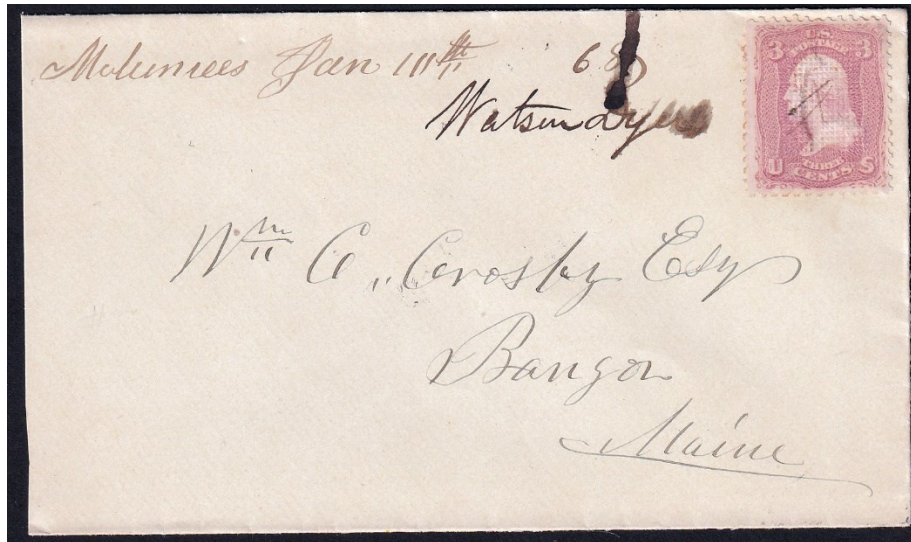 Molunces Jan 11th 68
Watson Dyer
3 U.S. POSTAGE 3
THREE
U CENTS S
Wm C. Crosby Esq
Bangor
Maine